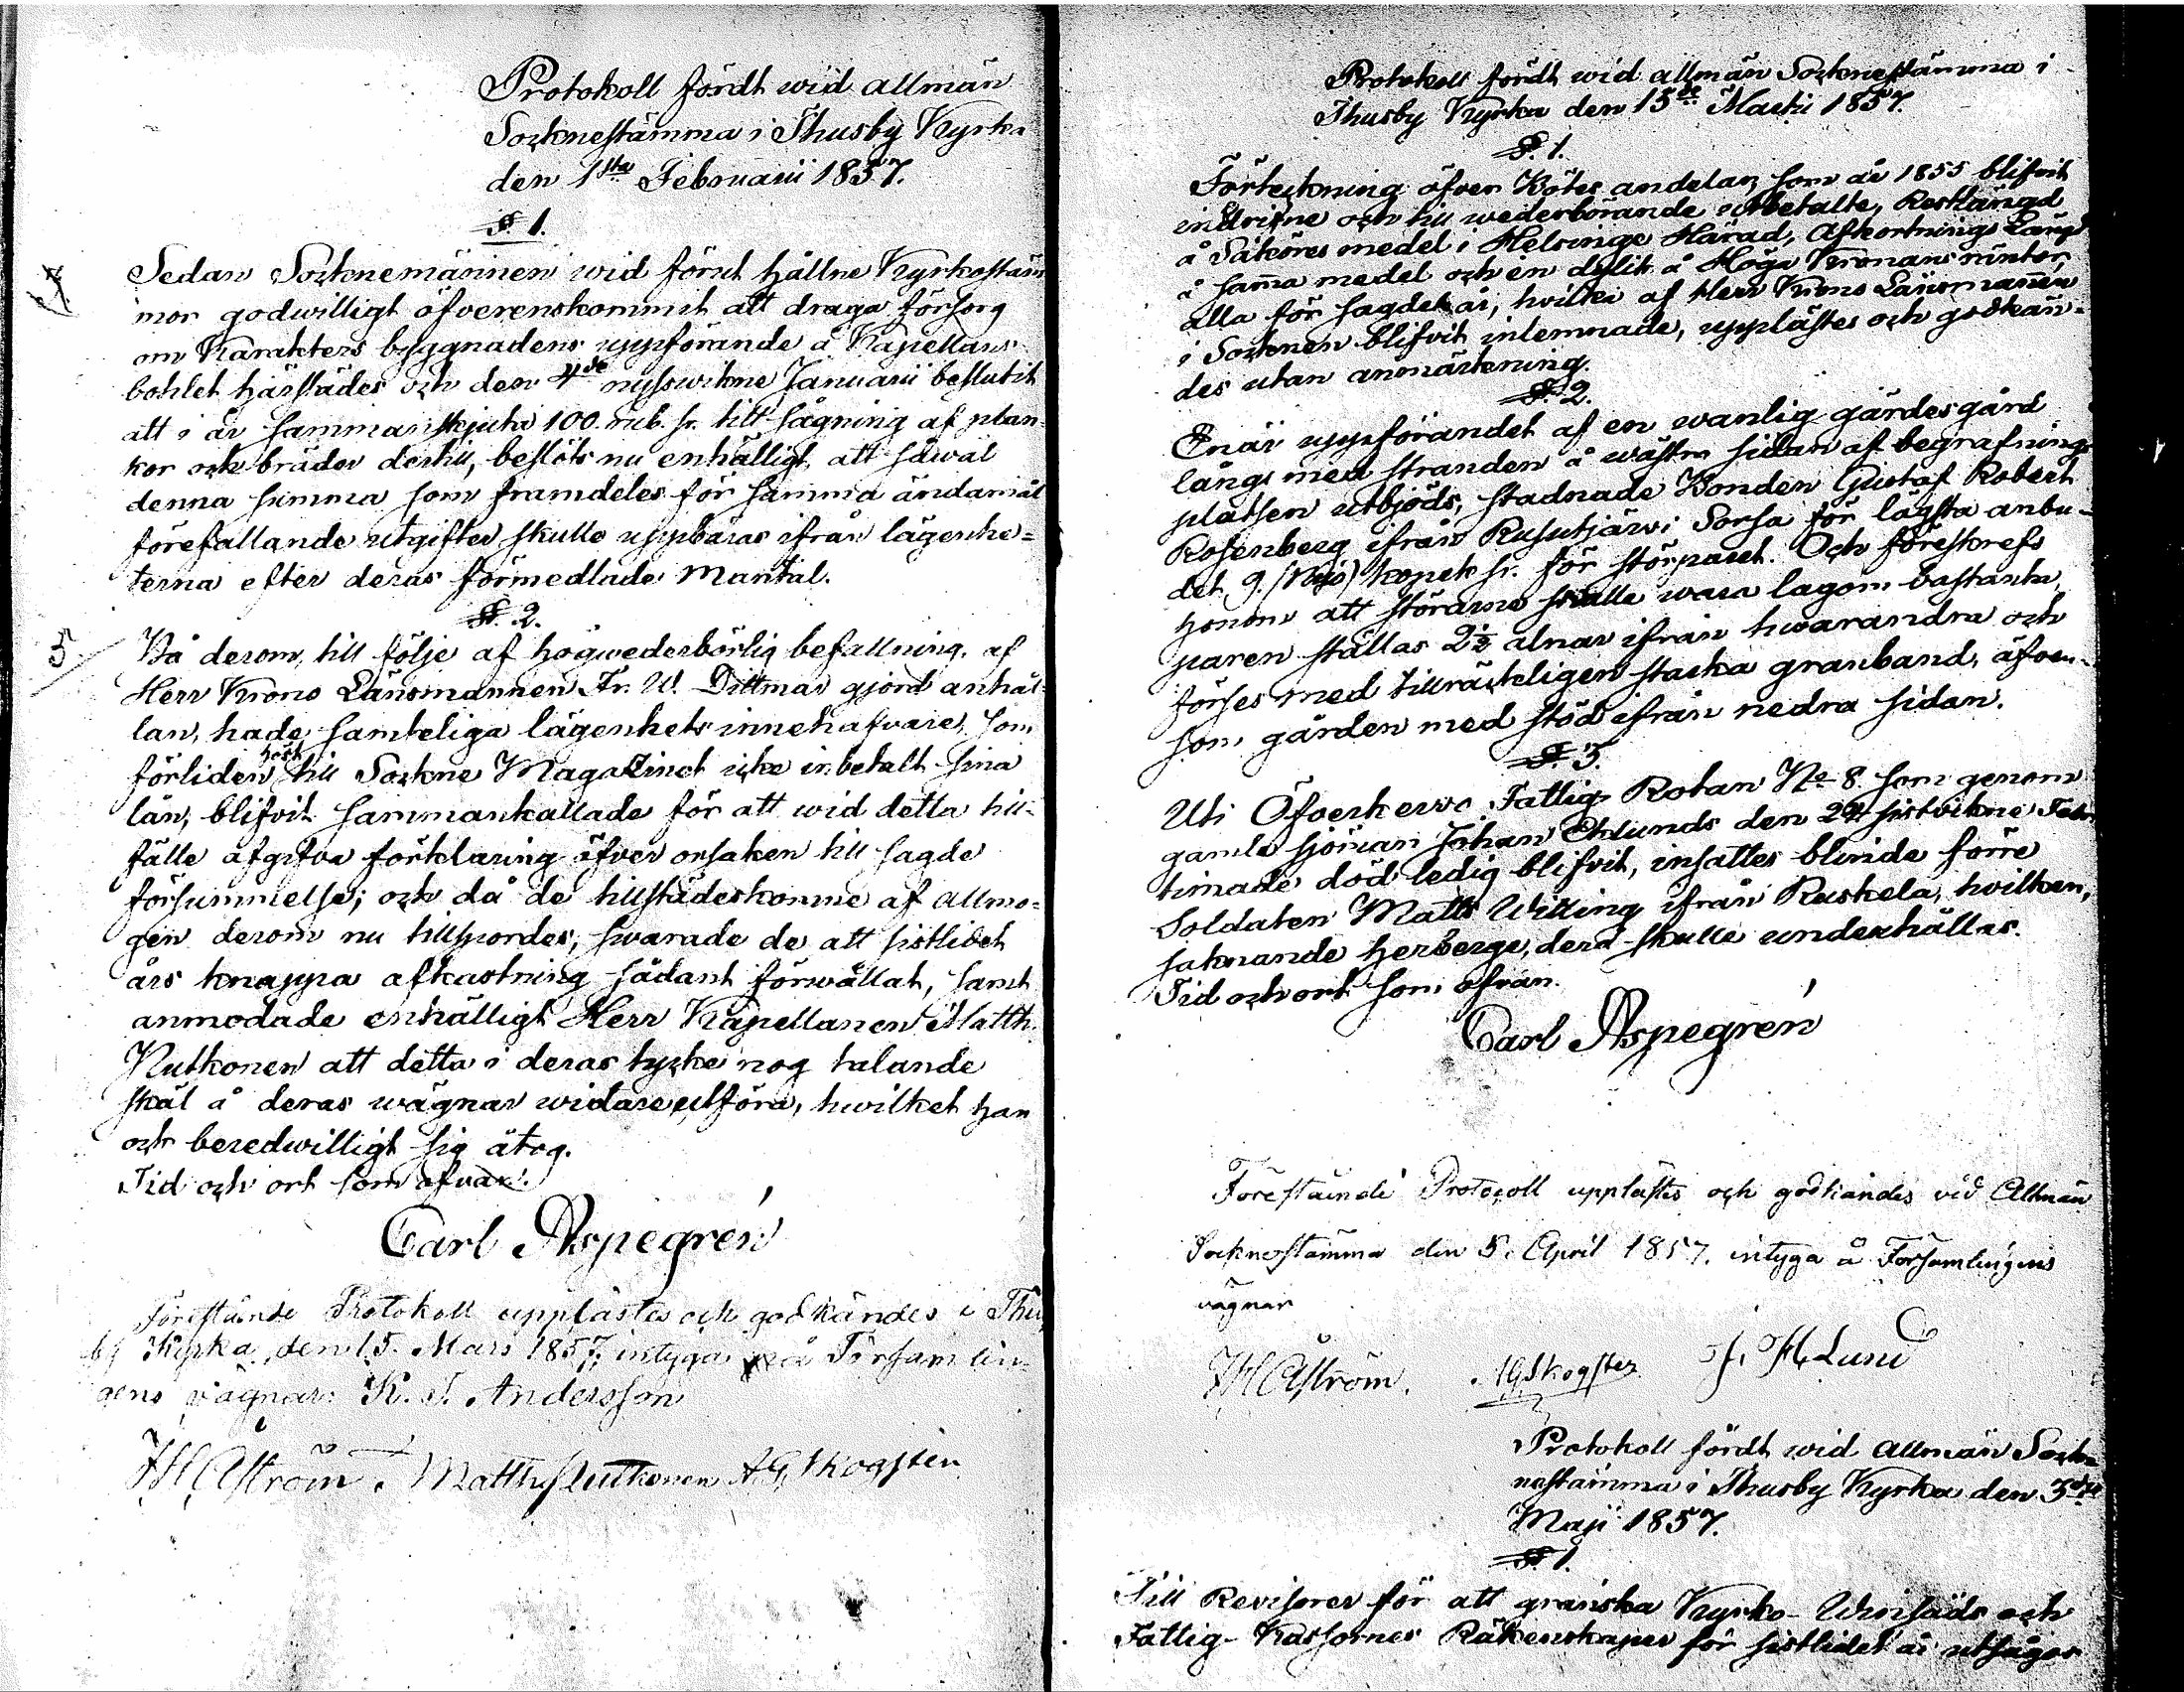 Protokoll fördt wid allmän
Socknestämma i Thusby Kyrka
den 1sta Februarii 1857.
§ 1.
Sedan Socknemännen wid förut hållne Kyrkostäm
mor godwilligt öfverenskommit att draga försorg
om Karakters byggnadens uppförande å Kapellans
bohlet härstädes och den 4de nysswikne Januarii beslutit
att i år sammanskjuta 100. rub. sr. till sågning af plan-
kor och bräder dertill, beslöts nu enhälligt, att såwäl
denna summa som framdeles för samma ändamål
förefallande utgifter skulle uppbäras ifrån lägenhe=
terna efter deras förmedlade Mantal.
§. 2.
5
På derom, till följe af högwederbörlig befallning, af
Herr Krono Länsmannen Fr. W. Dittmar gjord anhål-
lan, hade samteliga lägenhets innehafvare, som
förliden höst till Sockne Magazinet icke inbetalt sina
lån, blifvit sammankallade för att wid detta till-
fälle afgifva förklaring öfver orsaken till sagde
försummelse; och då de tillstädeskomne af allmo=
gen derom nu tillspordes, swarade de att sistlidet
års knappa afkastning sådant förwållat, samt
anmodade enhälligt Herr Kapellanen Matth.
Kutkonen att detta i deras tycke nog talande
skäl å deras wägnar widare utföra, hwilket han
och beredwilligt sig åtog.
Tid och ort som ofvan.
Carl Aspegrén
Förestånde Protokoll upplästes och godkändes i Thu
by Kyrka, den 15. Mars 1857, intyga på Församlin-
gens vägnar: K. J. Andersson
JH Åström. Matth. Kutkonen A.G. Skogster
Protokoll fördt wid allmän Socknestämma i
Thusby Kyrka den 15de Martii 1857.
§. 1.
Förteckning öfver Böter andelar, som år 1855 blifvit
indrifne och till wederbörande utbetalte, Restlängd
å Saköres medel i Helsinge Härad, Afkortnings Längd
å samma medel och en dylik å Höga Kronans räntor,
alla för sagdet år, hvilka af Herr Krono Länsmannen
i Socknen blifvit inlemnade, upplästes och godkän-
des utan anmärkning.
§. 2.
Enär uppförandet af en wanlig gärdesgård
längs med stranden å wästra sidan af begrafnings
platsen utbjöds, stadnade Bonden Gustaf Robert
Rosenberg ifrån Rusutjärwi Sorsa för lägsta anbu-
det 9. (Nijo) kopek sr. för störparet. Och föreskrefs
honom att störarne skulle wara lagom bastanta,
paren ställas 2½ alnar ifrån hwarandra och
förses med tillräckeligen starka granband, äfven-
som gärden med stöd ifrån nedra sidan.
§ 3.
Uti Öfverkervo Fattig Rotan No 8. som genom
gamla sjöman Johan Eklunds den 24 sistvikne Febr.
timade död ledig blifvit, insattes blinde förre
Soldaten Matts Witting ifrån Ruskela, hvilken,
saknande herberge, derå skulle underhållas.
Tid och ort som ofvan.
Carl Aspegrén
Föreståinde Protocoll upplästes och godkändes vid Allmän
Socknestämma den 5. April 1857, intyga å Församlingens
vägnar
JH Åström. AG Skogster J. H. Lund
Protokoll fördt wid allmän Sock-
nestämma i Thusby Kyrka den 3dje
Maji 1857.
§. 1.
Till Revisorer för att granska Kyrko- Winsäds och
Fattig- Kassornes Räkenskaper för sistlidet år utsågos